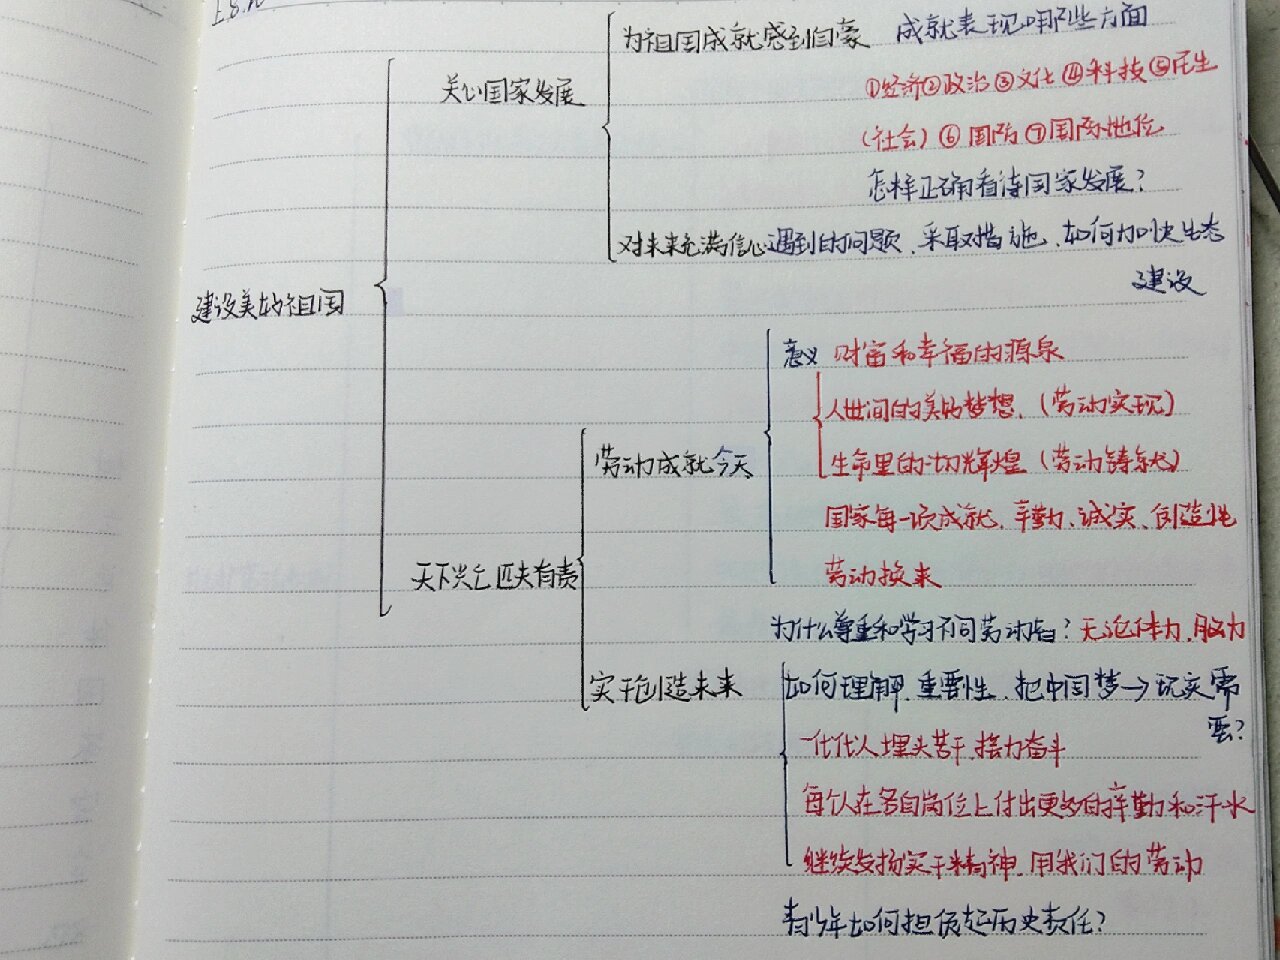 为祖国成就感到自豪 成就表现哪些方面
关心国家发展
①经济②政治③文化④科技⑤民生
(社会)⑥国防⑦国际地位
怎样正确看待国家发展?
对未来充满信心 遇到的问题、采取对措施、如何加快生态
建设
建设美好祖国
意义 财富和幸福的源泉
人世间的美好梦想、(劳动实现)
劳动成就今天
生命里的一切辉煌(劳动铸就)
国家每一项成就、辛勤、诚实、创造性
劳动换来
天下兴亡 匹夫有责
为什么尊重和学习不同劳动者?无论体力、脑力
实干创造未来
如何理解、重要性、把中国梦→现实需
要?
一代代人埋头苦干、接力奋斗
每个人在各自岗位上付出更多的辛勤和汗水
继续发扬实干精神、用我们的劳动
青少年如何担负起历史责任?